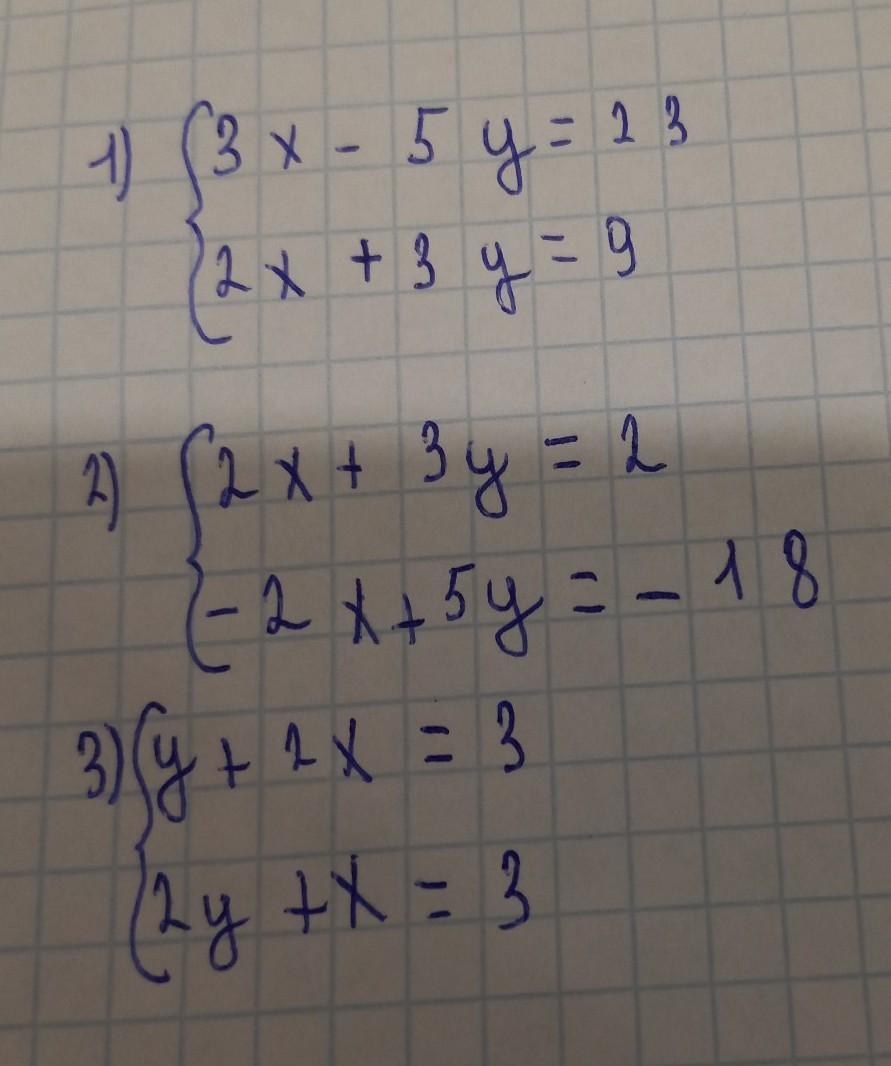 1) { 3x - 5y = 23
2x + 3y = 9
2) { 2x + 3y = 2
-2x + 5y = -18
3) { y + 2x = 3
2y + x = 3